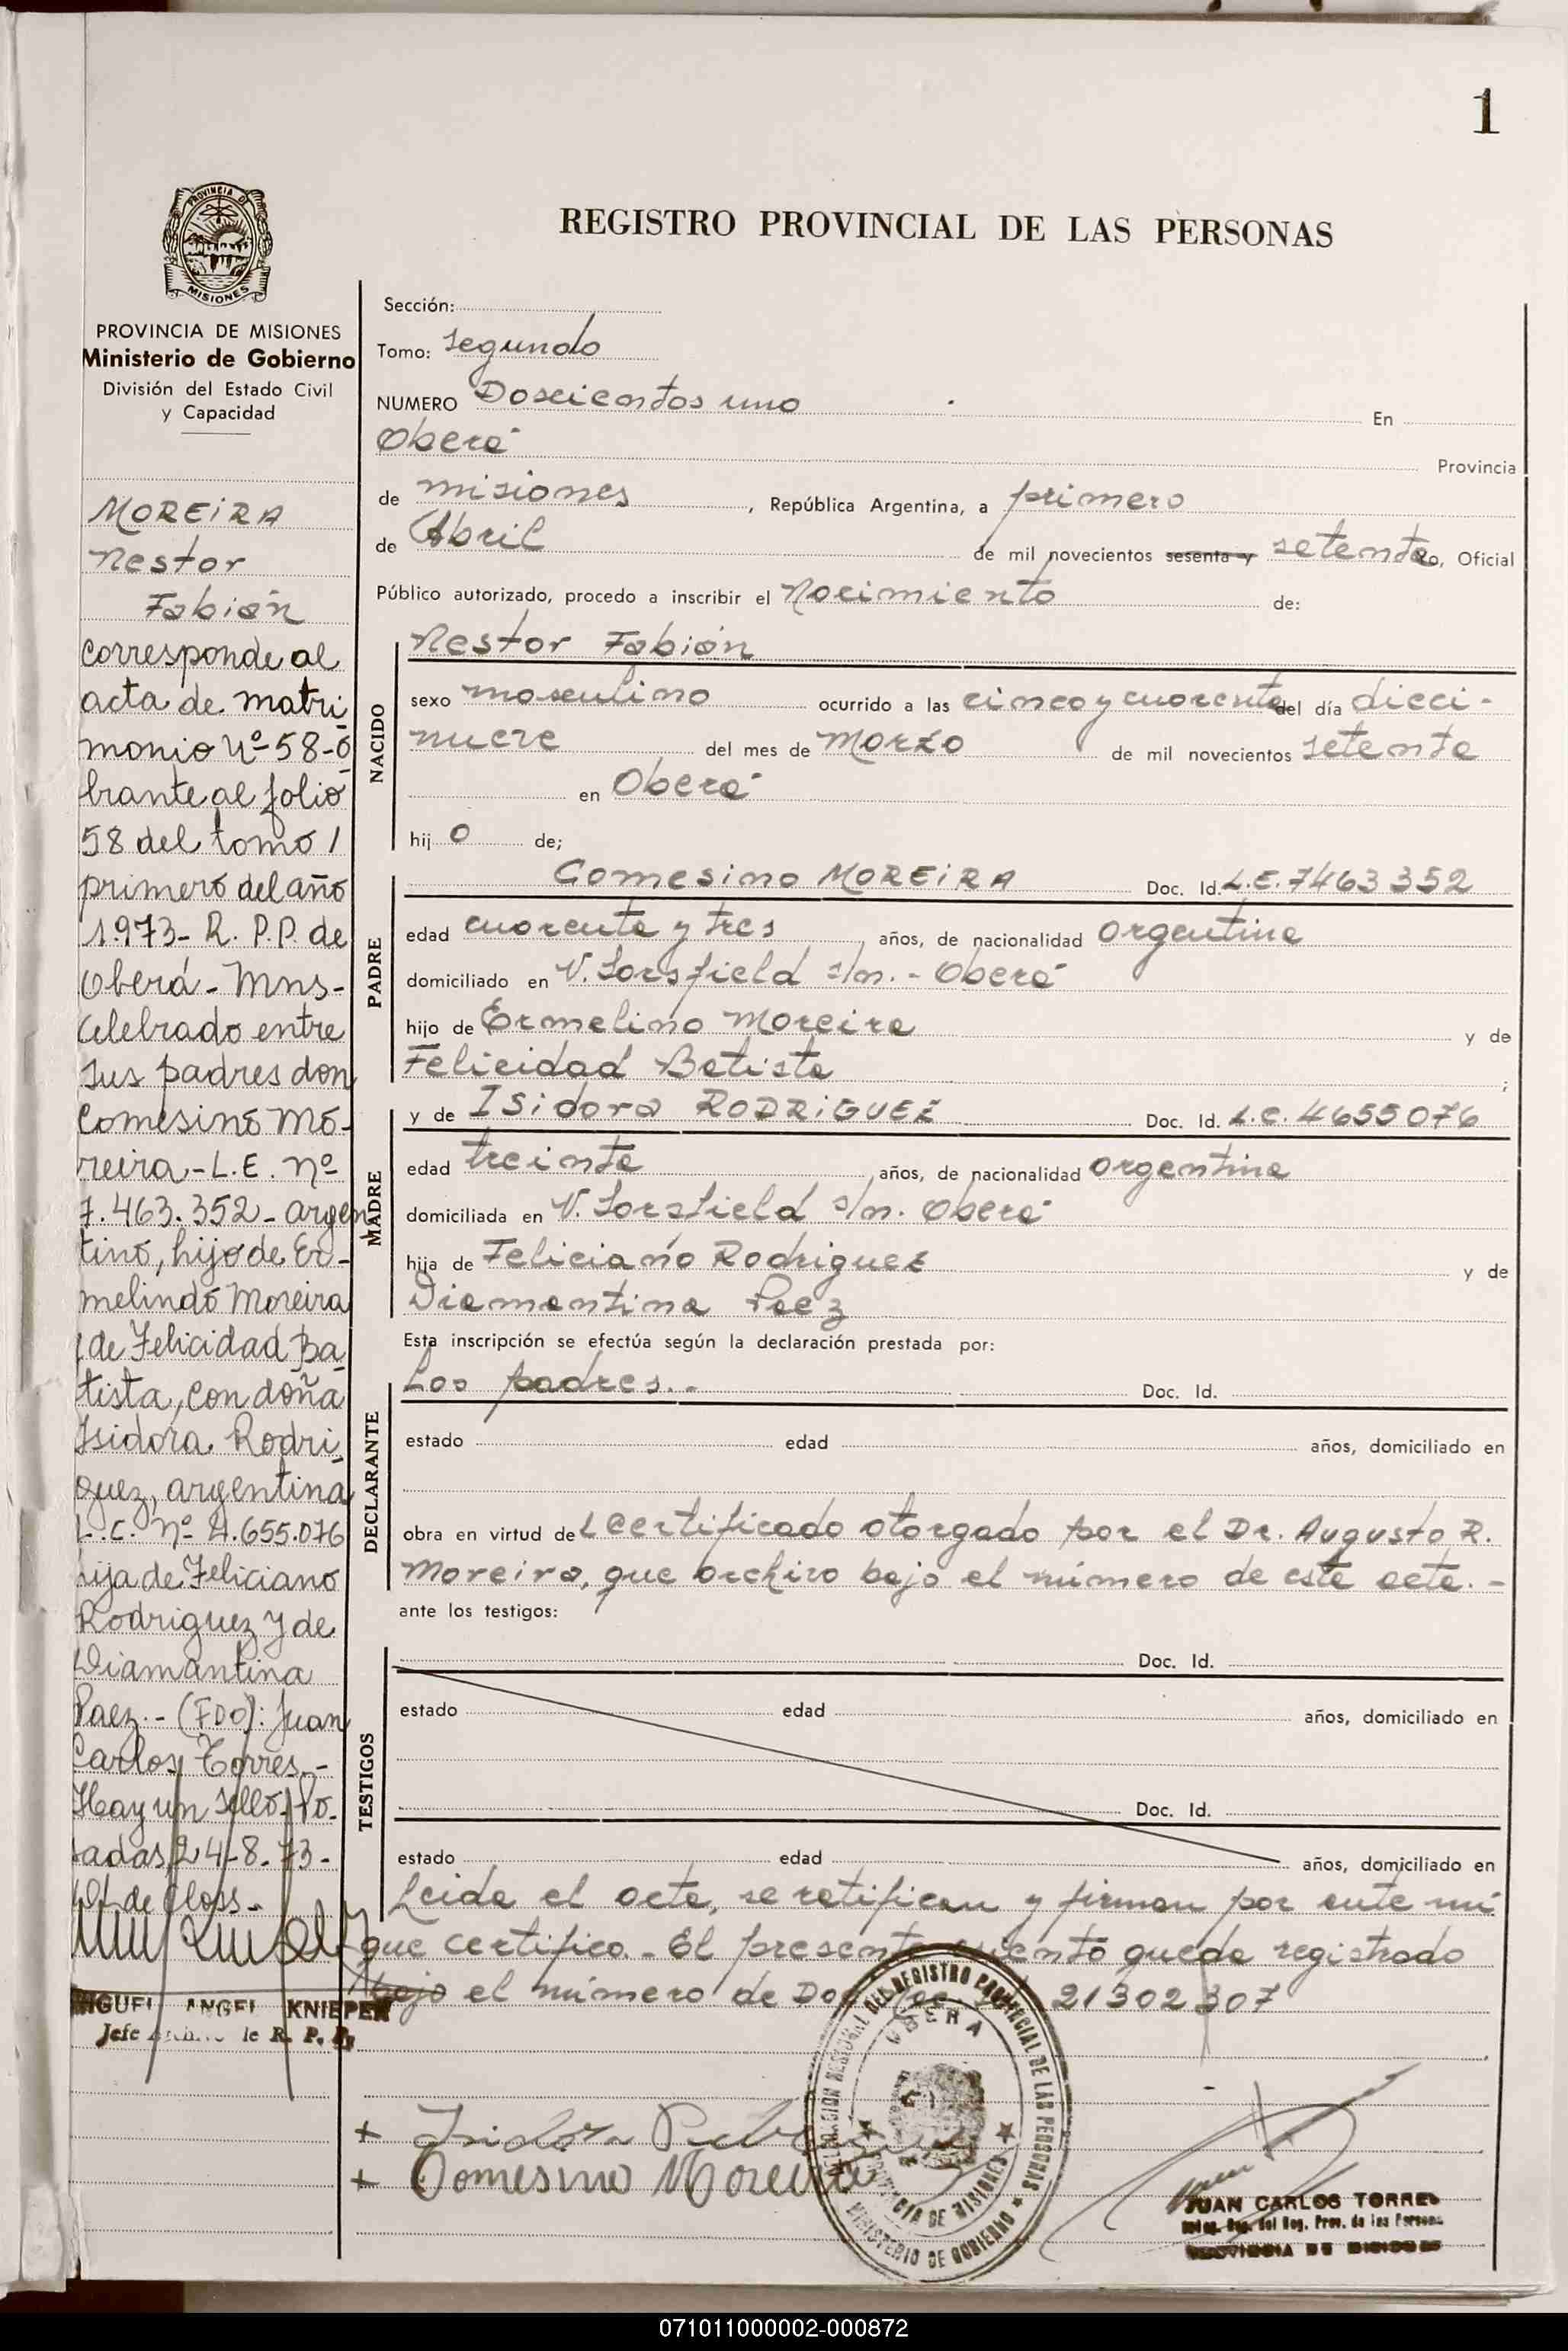 1
PROVINCIA DE
MISIONES
PROVINCIA DE MISIONES
Ministerio de Gobierno
División del Estado Civil
y Capacidad
MOREIRA
Nestor
Fabián
Corresponde al
acta de matri-
monio Nº 58-o
brante al folio
58 del tomo 1
primero del año
1973- R. P.P. de
Oberá - Mns-
Celebrado entre
sus padres don
Comesino Mo-
reira - L.E. nº
7.463.352 - argen
tino, hijo de Er-
melindo Moreira
y de Felicidad Ba-
tista, con doña
Isidora Rodri-
guez, argentina
L.C. nº 4.655.076
hija de Feliciano
Rodriguez y de
Diamantina
Paez.- (FDO): Juan
Carlos Torres.-
Hay un sello. Po-
sadas, 24-8-73-
de Closs.-
MIGUEL ANGEL KNIEPER
Jefe Archivo de R. P. P.
REGISTRO PROVINCIAL DE LAS PERSONAS
Sección:
Tomo: Segundo
NUMERO Doscientos uno En
Oberá Provincia
de misiones, República Argentina, a primero
de Abril de mil novecientos sesenta y setenta, Oficial
Público autorizado, procedo a inscribir el Nacimiento de:
NACIDO
Nestor Fabián
sexo masculino ocurrido a las cinco y cuarenta del día dieci-
nueve del mes de Marzo de mil novecientos setenta
en Oberá
hij o de;
PADRE
Comesino MOREIRA Doc. Id. L.E. 7463352
edad cuarenta y tres años, de nacionalidad argentina
domiciliado en V. Sarsfield s/n. - Oberá
hijo de Ermelino Moreira y de
Felicidad Batista ;
MADRE
y de Isidora RODRIGUEZ Doc. Id. L.C. 4655076
edad treinta años, de nacionalidad argentina
domiciliada en V. Sarsfield s/n. Oberá
hija de Feliciano Rodriguez y de
Diamantina Paez
Esta inscripción se efectúa según la declaración prestada por:
DECLARANTE
Los padres.- Doc. Id.
estado edad años, domiciliado en
obra en virtud del certificado otorgado por el Dr. Augusto R.
Moreira, que archivo bajo el número de este acta.-
ante los testigos:
TESTIGOS
Doc. Id.
estado edad años, domiciliado en
Doc. Id.
estado edad años, domiciliado en
Leida el acta, se ratifican y firman por ante mi
que certifico.- El presente asiento queda registrado
bajo el número de Doc. 21302307
DELEGACION REGIONAL DEL REGISTRO PROVINCIAL DE LAS PERSONAS
OBERA
PROVINCIA DE MISIONES
MINISTERIO DE GOBIERNO
+ Isidora
+ Comesino Moreira
JUAN CARLOS TORRES
Deleg. Reg. del Reg. Prov. de las Personas
PROVINCIA DE MISIONES
071011000002-000872